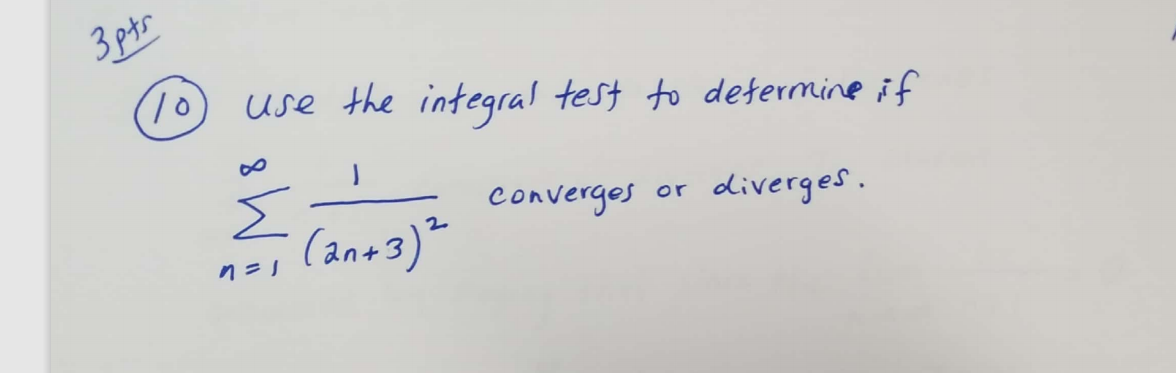 3 pts
10 use the integral test to determine if
∞
∑ 1/(2n+3)² converges or diverges.
n=1